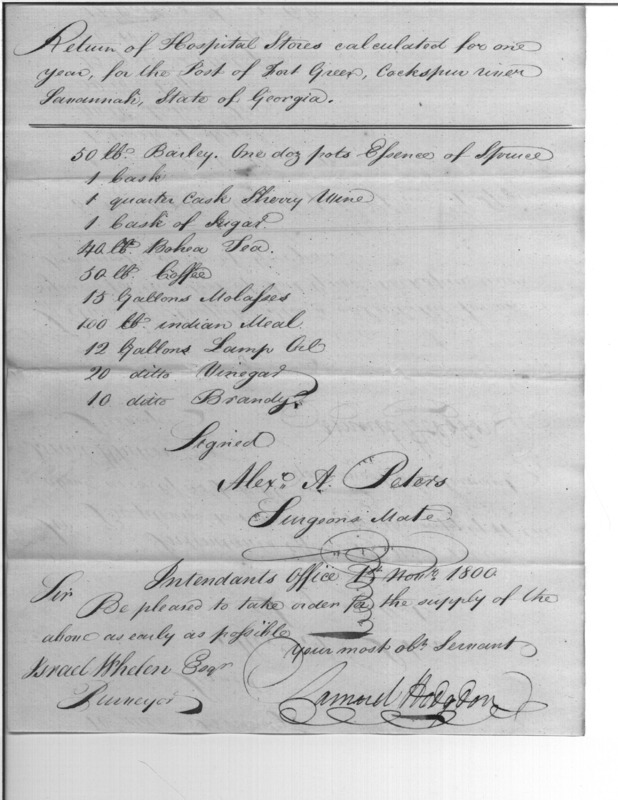 Return of Hospital Stores calculated for one
year, for the Post of Fort Green, Cockspur river
Savannah, State of Georgia.
50 lbs. Barley. One doz pots Essence of Spruce
1 Cask
1 quarter Cask Sherry Wine
1 Cask of Sugar.
40 lb. Bohea Tea.
50 lb. Coffee
15 Gallons Molasses
100 lbs. indian Meal.
12 Gallons Lamp Oil
20 ditto Vinegar
10 ditto Brandy.
Signed
Alexr. A. Peters
Surgeons Mate
Intendants Office Novr. 1800
Sir
Be pleased to take order for the supply of the
above as early as possible
your most obt. Servant
Israel Whelen Esqr
Purveyor
Samuel Hodgdon